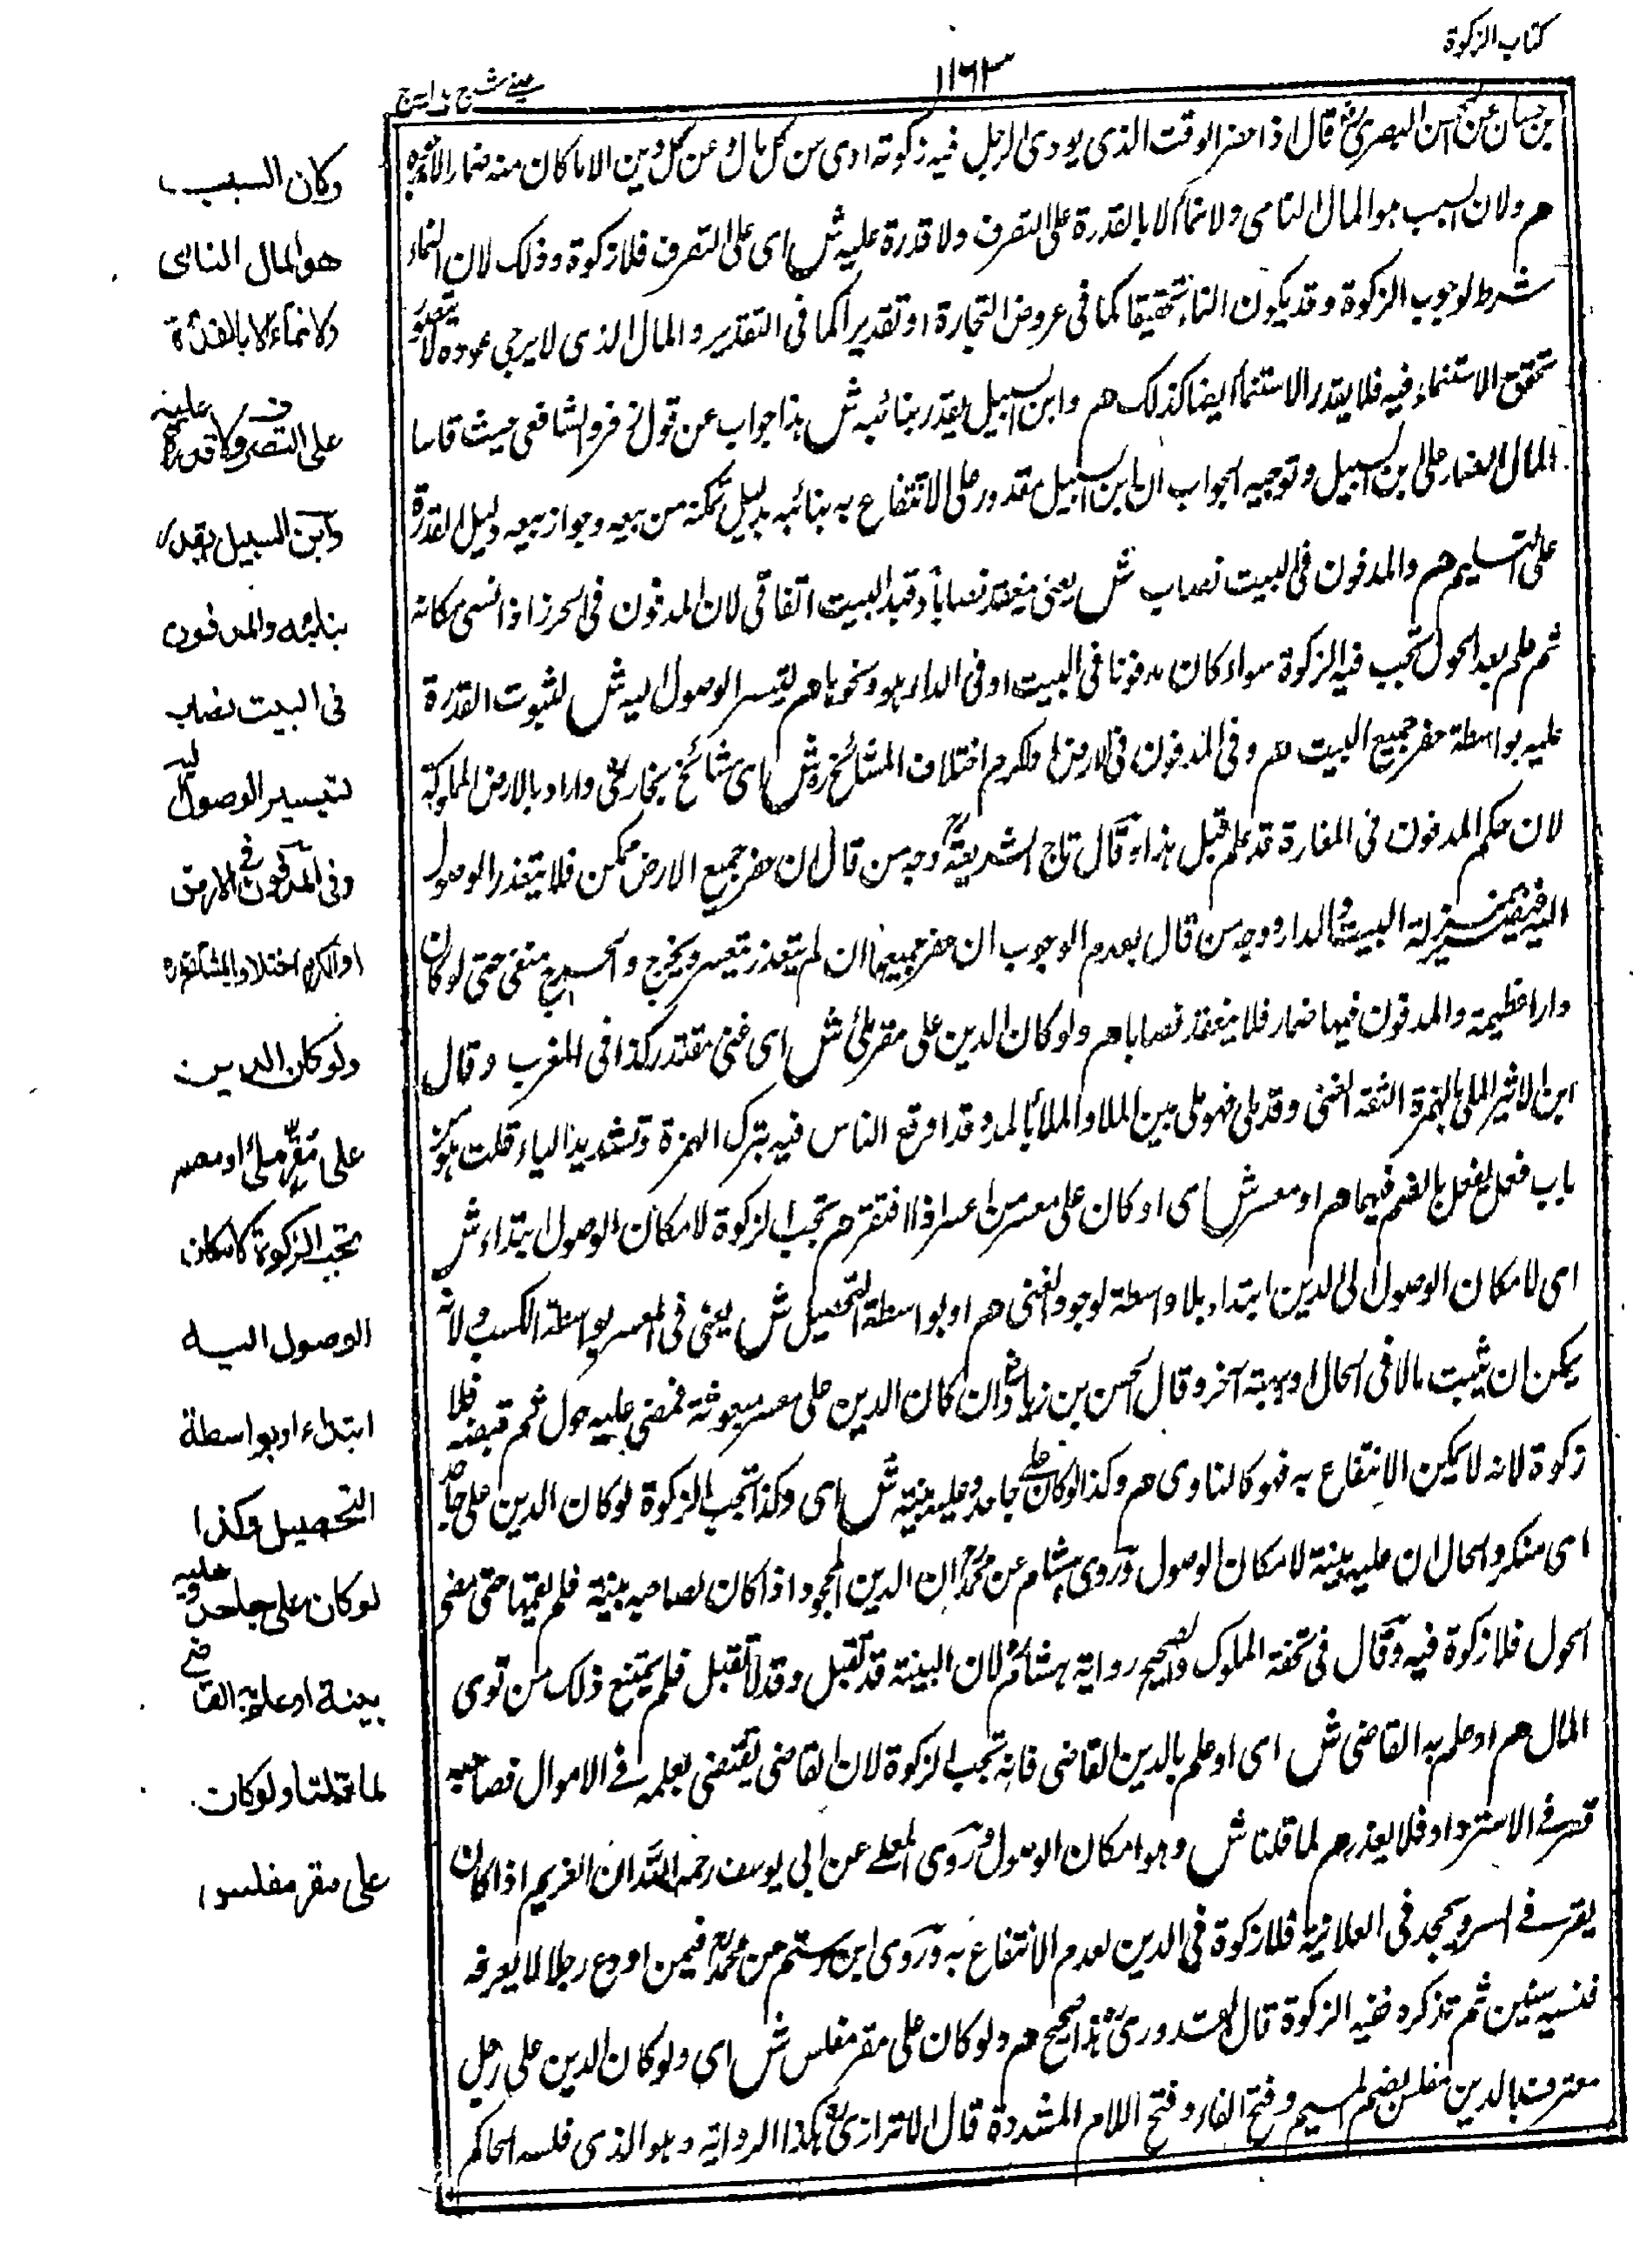 كتاب الزكوة
١١٦٣
عينى شرح هدايه ج
بن حسان عن الحسن البصرى رض قال اذا حضر الوقت الذى يودى الرجل فيه زكوته ادى من كل مال وعن كل دين الا ما كان منه ضمارا لا يرجوه
هم ولان السبب هو المال النامى ولا نماء الا بالقدرة على التصرف ولا قدرة عليه ش اى على التصرف فلا زكوة وذلك لان النماء
شرط لوجوب الزكوة وقد يكون النماء تحقيقا كما فى عروض التجارة او تقديرا كما فى التقدير والمال الذى لا يرجى عوده لا يتصور
تحقق الاستنماء فيه فلا يقدر الاستنماء ايضا كذلك هم وابن السبيل يقدر بنائبه ش هذا جواب عن قول زفر والشافعى حيث قاسا
المال الضمار على ابن السبيل وتوجيه الجواب ان ابن السبيل مقدور على الانتفاع به بنائبه بدليل تمكنه من بيعه وجواز بيعه دليل القدرة
على التسليم هم والمدفون فى البيت نصاب ش يعنى ينعقد نصابا وقيد البيت اتفاقى لان المدفون فى الحرز اذا نسى مكانه
ثم علم بعد الحول تجب فيه الزكوة سواء كان مدفونا فى البيت او فى الدار هو ونحوها هم لتيسر الوصول اليه ش لثبوت القدرة
عليه بواسطة حفر جميع البيت هم وفى المدفون فى الارض او كرم اختلاف المشائخ ره ش اى مشائخ بخارى رح واراد بالارض المملوكة
لان حكم المدفون فى المفازة قد علم قبل هذا وقال تاج الشريعة رح وجه من قال ان حفر جميع الارض ممكن فلا يتعذر الوصول
اليه فيصير بمنزلة البيت والدار ووجه من قال بعدم الوجوب ان حفر جميعها ان لم يتعذر يتعسر ويحرج والحرج منفى حتى لو كان
دارا عظيمة والمدفون فيها ضمار فلا ينعقد نصابا هم ولو كان الدين على مقر ملئ ش اى غنى مقتدر كذا فى المغرب وقال
ابن الاثير الملئ بالهمزة الثقة الغنى وقد ملئ فهو ملئ بين الملاء والملاءة بالمد وقد اولع الناس فيه بترك الهمزة وتشديد الياء قلت هو من
باب فعل يفعل بالضم فيهما هم او معسر ش اى او كان على معسر من اعسر اذا افتقر هم تجب الزكوة لامكان الوصول ابتداء ش
اى لامكان الوصول الى الدين ابتداء بلا واسطة لوجود الغنى هم او بواسطة التحصيل ش يعنى فى المعسر بواسطة الكسب ولانه
يمكن ان يثبت مالا فى الحال او يهبة آخر وقال الحسن بن زياد رض وان كان الدين على معسر فمضى عليه حول ثم قبضه فلا
زكوة لانه لا يمكن الانتفاع به فهو كالتاوى هم وكذا لو كان على جاحد وعليه بينة ش اى وكذا تجب الزكوة لو كان الدين على جاحد
اى منكر والحال ان عليه بينة لامكان الوصول وروى هشام عن محمد رح ان الدين المجحود اذا كان لصاحبه بينة فلم يقمها حتى مضى
الحول فلا زكوة فيه وقال فى تحفة الملوك والصحيح رواية هشام رح لان البينة قد تقبل وقد لا تقبل فلم يمتنع ذلك من توى
المال هم او علم به القاضى ش اى او علم بالدين القاضى فانه تجب الزكوة لان القاضى يقتضى بعلمه فى الاموال فصاحبه
قصر فى الاسترداد فلا يعذر هم لما قلنا ش وهو امكان الوصول وروى المعلى عن ابى يوسف رحمه الله ان الغريم اذا كان
يقر فى السر ويجحد فى العلانية فلا زكوة فى الدين لعدم الانتفاع به وروى ابن رستم عن محمد رح فيمن اودع رجلا لا يعرفه
فنسيه سنين ثم تذكره ففيه الزكوة قال القدورى رح هذا صحيح هم ولو كان على مقر مفلس ش اى ولو كان الدين على رجل
معترف بالدين مفلس بضم الميم وفتح الفاء وفتح اللام المشددة قال الاترازى رح هكذا الرواية وهو الذى فلسه الحاكم
وكان السبب
هو المال النامى
ولا نماء الا بالقدرة
على التصرف ولا قدرة عليه
وابن السبيل يقدر
بنائبه والمدفون
فى البيت نصاب
لتيسير الوصول اليه
وفى المدفون فى الارض
او الكرم اختلاف المشائخ ره
ولو كان الدين
على مقر ملئ او معسر
تجب الزكوة لامكان
الوصول اليه
ابتداء او بواسطة
التحصيل وكذا
لو كان على جاحد وعليه
بينة او علم به القاضى
لما قلنا ولو كان
على مقر مفلس